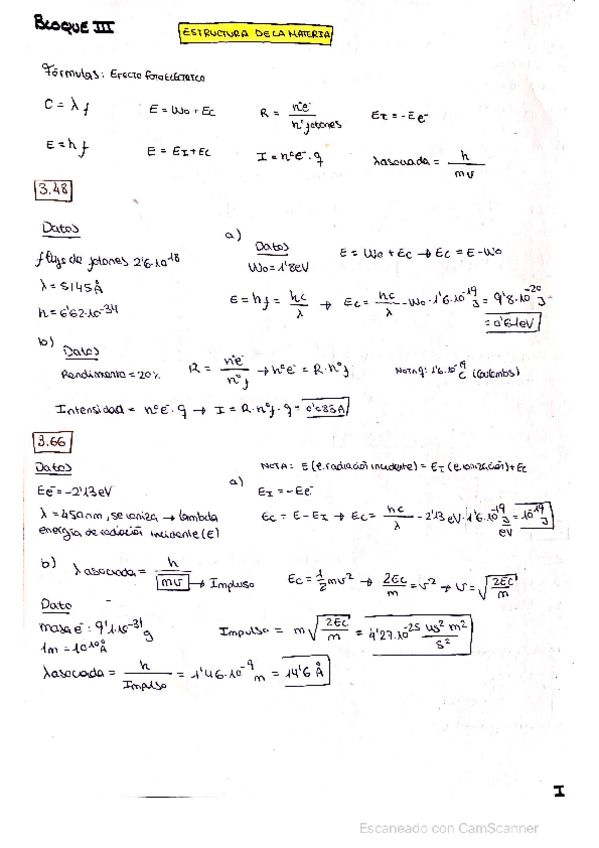 BLOQUE III
ESTRUCTURA DE LA MATERIA
Fórmulas: EFECTO FOTOELÉCTRICO
C = λ f   E = Wo + Ec   R = nºe⁻ / nºfotones   E_I = - E e⁻
E = h f   E = E_I + Ec   I = nºe⁻ · q   λ asociada = h / mv
3.48
Datos
flujo de fotones 2'6·10¹⁸
λ = 5145 Å
h = 6'62·10⁻³⁴
a)
Datos
Wo = 1'8eV
E = Wo + Ec → Ec = E - Wo
E = h f = hc / λ → Ec = hc / λ - Wo · 1'6·10⁻¹⁹ J = 9'8·10⁻²⁰ J
= 0'61eV
b)
Datos
Rendimiento = 20%
R = nºe⁻ / nºf → nºe⁻ = R · nºf
NOTA q: 1'6·10⁻¹⁹ C (Coulombs)
Intensidad = nºe⁻ · q → I = R · nºf · q = 0'083A
3.66
Datos
Ee⁻ = -2'13 eV
λ = 450nm, se ioniza → lambda
energía de radiación incidente (E)
a)
NOTA: E (e. radiación incidente) = E_I (e. ionización) + Ec
E_I = - Ee⁻
Ec = E - E_I → Ec = hc / λ - 2'13 eV · 1'6·10⁻¹⁹ J / eV = 10⁻¹⁹ J
b)
λ asociada = h / mv → Impulso
Ec = 1/2 mv² → 2Ec / m = v² → v = √(2Ec / m)
Dato
masa e⁻: 9'1·10⁻³¹ g
1m = 10¹⁰ Å
Impulso = m √(2Ec / m) = 4'27·10⁻²⁵
λ asociada = h / Impulso = 1'46·10⁻⁹ m = 14'6 Å
I
Escaneado con CamScanner